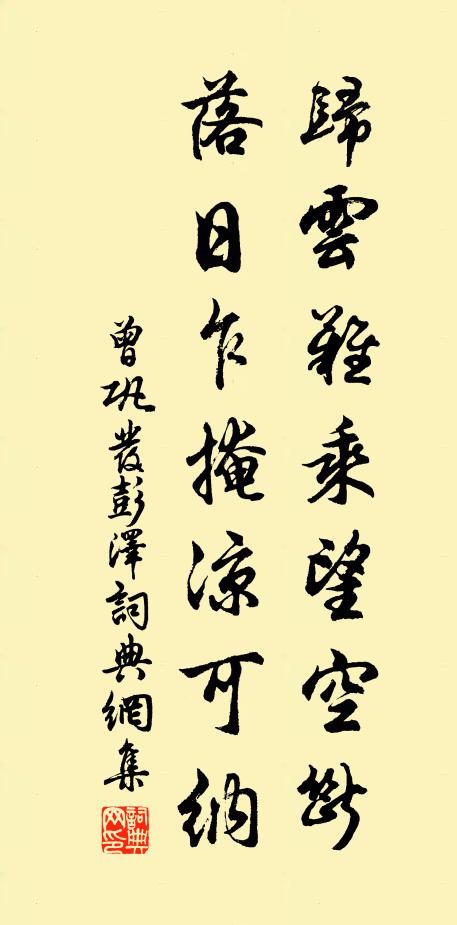 歸雲難乘望空斷
落日乍掩涼可納
曾巩發彭澤詞典網集
詞典網印